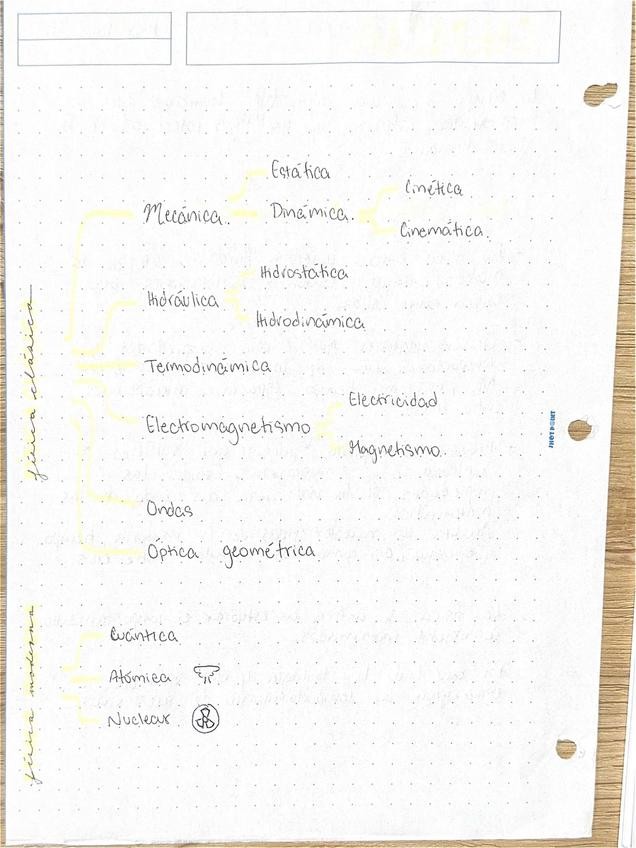 física clásica
Mecánica
Estática
Dinámica
Cinética
Cinemática.
Hidráulica
Hidrostática
Hidrodinámica
Termodinámica
Electromagnetismo
Electricidad
Magnetismo.
Ondas
Óptica geométrica
física moderna
Cuántica
Atómica
Nuclear